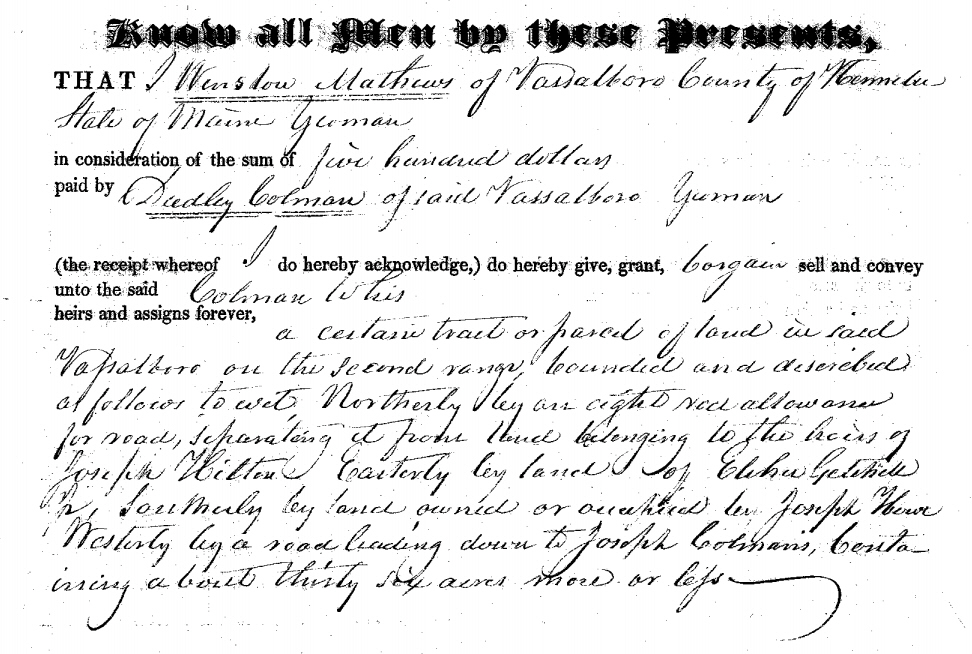 Know all Men by these Presents,
THAT I Winslow Mathews of Vassalboro County of Kennebec
State of Maine Yeoman
in consideration of the sum of five hundred dollars
paid by Dudley Colman of said Vassalboro Yeoman
(the receipt whereof I do hereby acknowledge,) do hereby give, grant, bargain sell and convey
unto the said Colman & his
heirs and assigns forever,
a certain tract or parcel of land in said
Vassalboro on the second range, bounded and discribed
as follows to wit, Northerly by an eight rod allowance
for road, separating it from land belonging to the heirs of
Joseph Hilton Easterly by land of Elihu Getchell
Jr, Southerly by land owned or occupied by Joseph Howe
Westerly by a road leading down to Joseph Colmans, Conta
ining about thirty six acres more or less